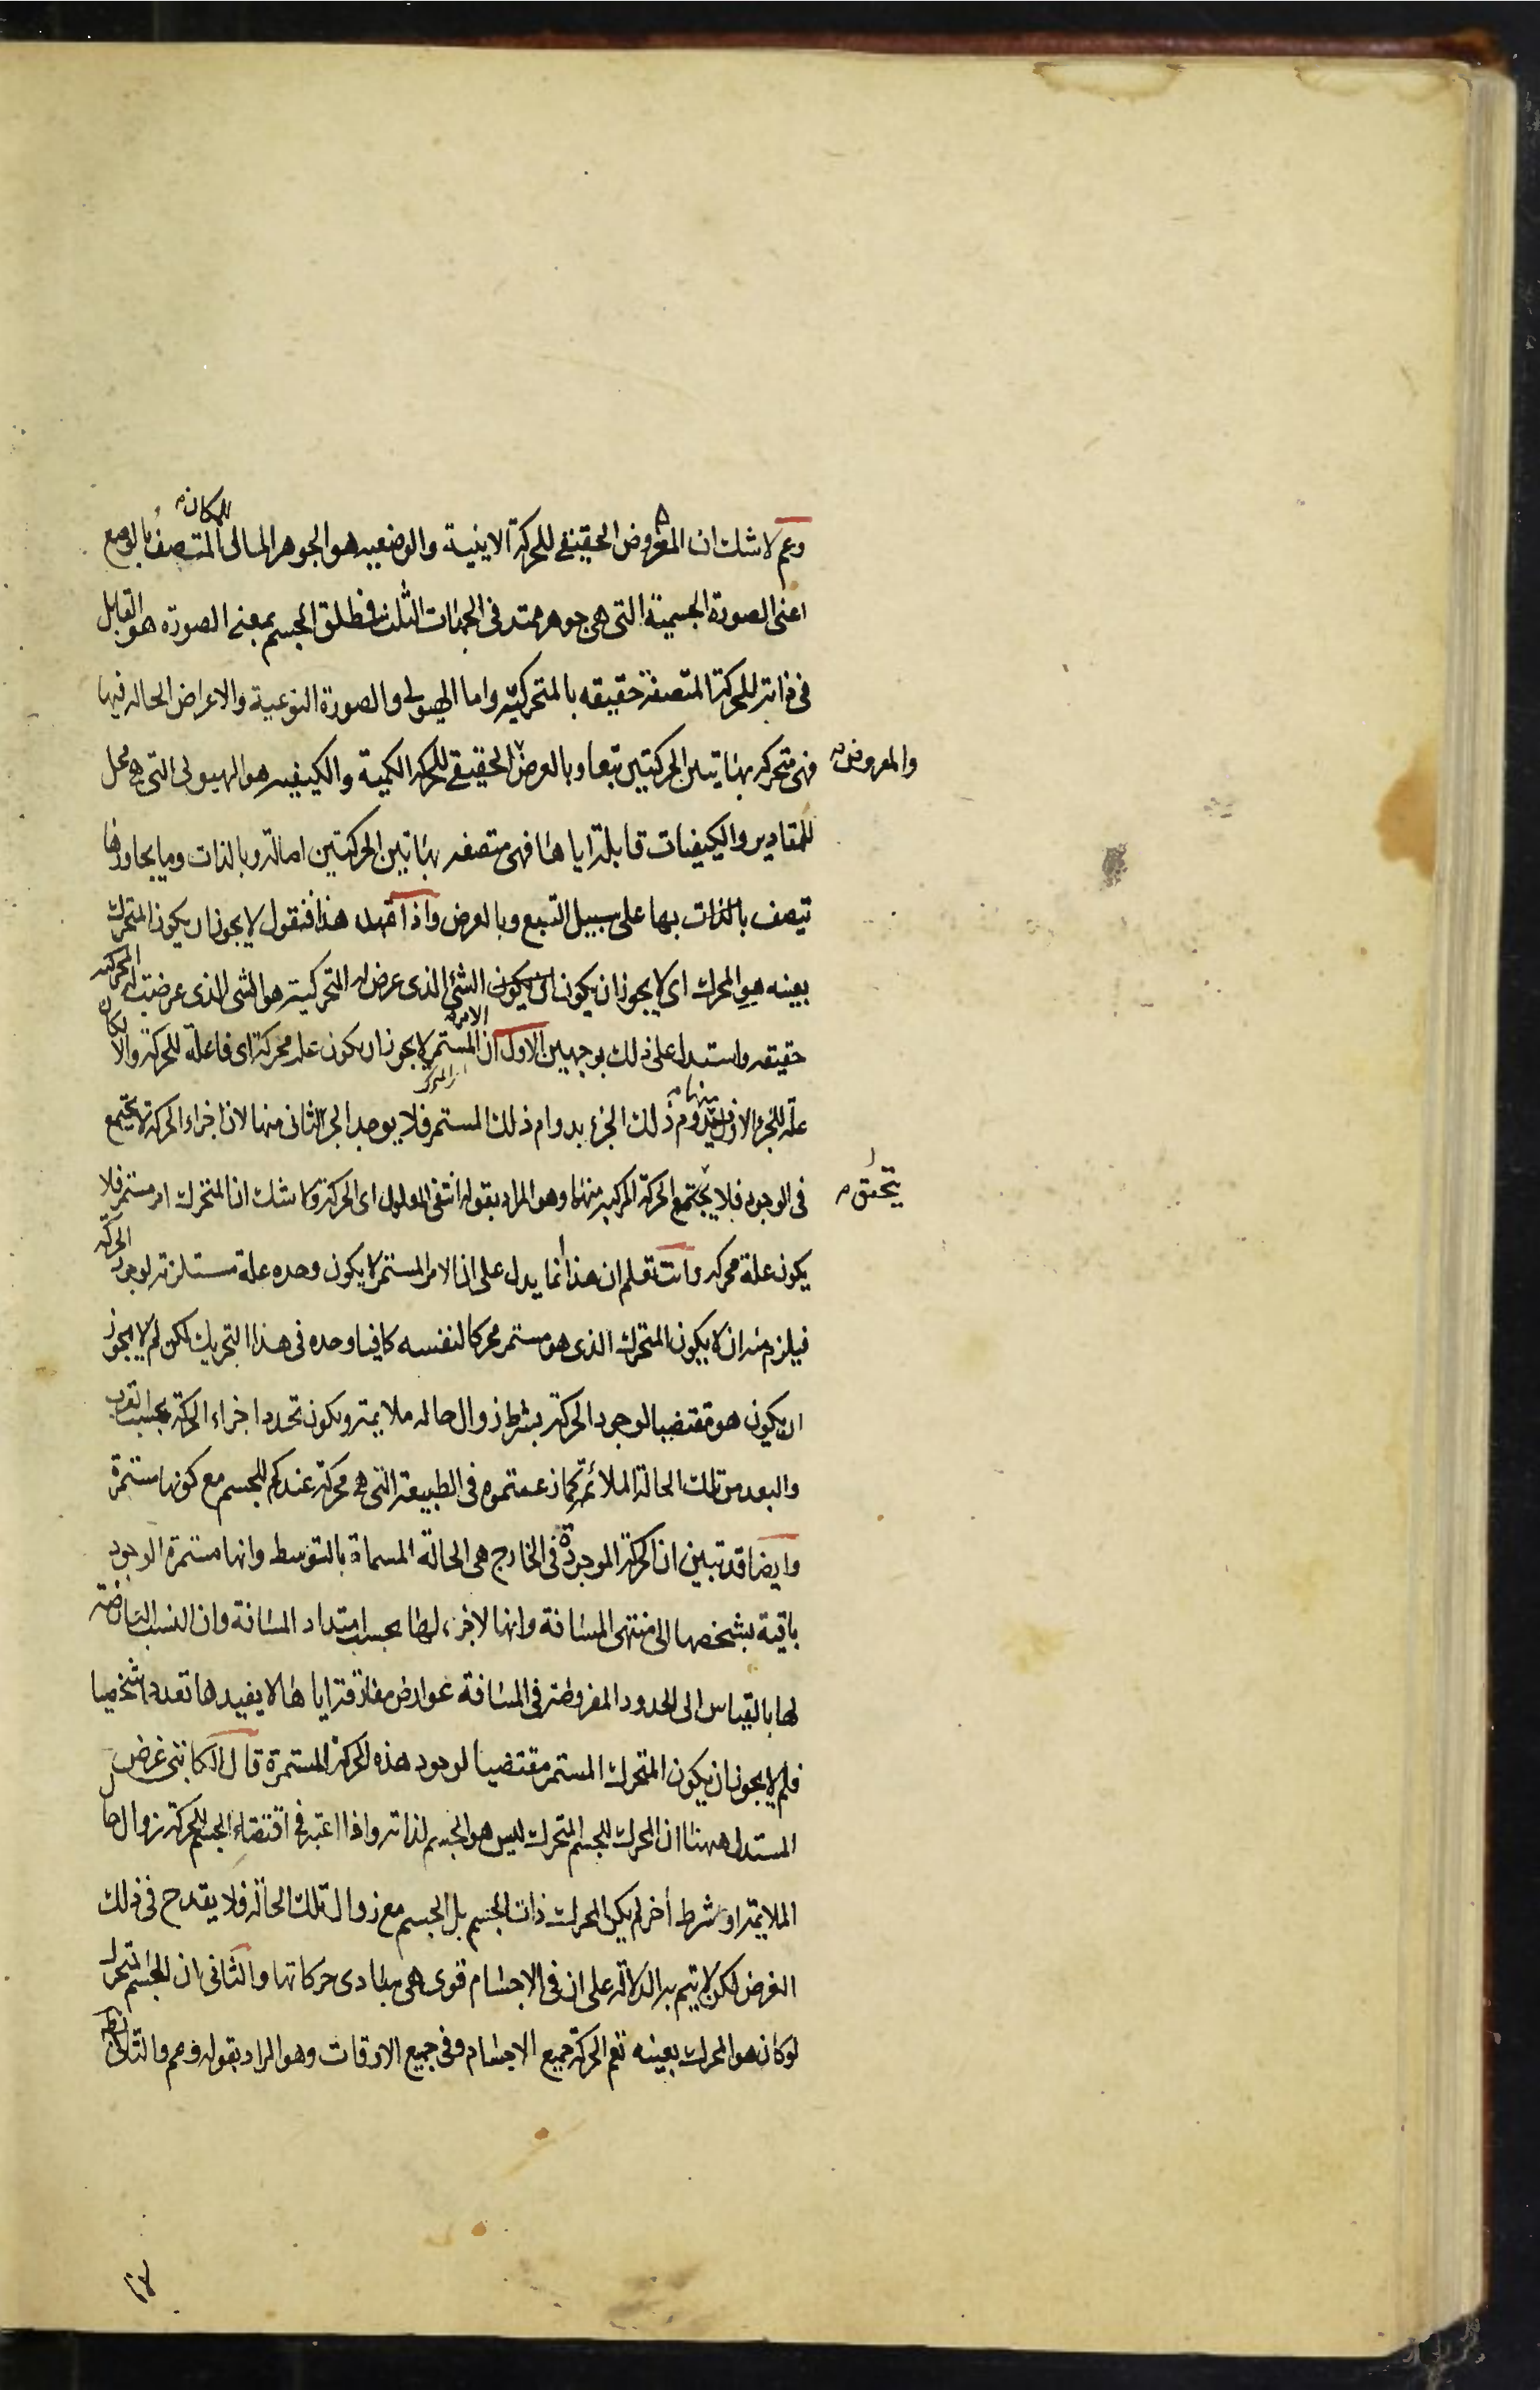 وعم لا شك ان المعروض الحقيقي للحركة الاينية والوضعيه هو الجوهر المالى للمكان المتصف بالوضع
اعنى الصورة الجسمية التى هى جوهر ممتد فى الجهات الثلث فطلق الجسم بمعنى الصورة هو القابل
فى ذاته للحركة المتصفة حقيقه بالمتحركية واما الهيولى والصورة النوعية والاعراض الحاله فيها
فهى متحركه بهاتين الحركتين تبعا وبالعرض الحقيقي للحركه الكمية والكيفيه هو الهيولى التى هى محل
والمعروض
للمقادير والكيفيات قابلة اياها فهى متصفه بهاتين الحركتين اصالة وبالذات وما يجاورها
تيصف بالذات بها على سبيل التبع وبالعرض واذا تمهد هذا فنقول لا يجوز ان يكون المتحرك
بعينه هو المحرك اى لا يجوز ان يكون ان يكون الشئ الذى عرض له التحركية هو الشى الذى عرضت له المحركيه
حقيقه واستدل على ذلك بوجهين الاول ان الامر المستمر لا يجوز ان يكون علة محركة اى فاعلة للحركة والا لكان
علة للجزء الاول منها فيدوم ذلك الجزء بدوام ذلك المستمر فلا يوجد الجزء الثانى منها لان اجزاء الحركة لا يجتمع
فى الوجود فلا يجتمع الحركة المركبه منها وهو المراد بقوله انتفى المعلول اى الحركة ولا شك ان المتحرك امر مستمر فلا
يتحقق
يكون علة محركه وانت تعلم ان هذا انما يدل على ان الامر المستمر لا يكون وحده علة مستلزمة لوجود الحركة
فيلزم منه ان لا يكون المتحرك الذى هو مستمر محركا لنفسه كافيا وحده فى هذا التحريك لكن لم لا يجوز
ان يكون هو مقتضيا لوجود الحركة بشرط زوال حاله ملايمة ويكون تجدد اجزاء الحركة بحسب القرب
والبعد من تلك الحالة الملائمة كما زعمتموه فى الطبيعة التى هى محركة عندكم للجسم مع كونها مستمرة
وايضا قد تبين ان الحركة الموجودة فى الخارج هى الحالة المسماة بالتوسط وانها مستمرة الوجود
باقية بشخصها الى منتهى المسافة وانها لا جزء لها بحسب امتداد المسافة وان النسب العارضة
لها بالقياس الى الحدود المفروضة فى المسافة عوارض مفارقة اياها لا يفيدها تعددا شخصيا
فلم لا يجوز ان يكون المتحرك المستمر مقتضيا لوجود هذه الحركة المستمرة قال الكاتبى غرض
المستدل ههنا ان المحرك للجسم المتحرك ليس هو الجسم لذاته واذا اعتبر فى اقتضاء الجسم للحركة زوال حال
الملايمة او شرط أخر لم يكن المحرك ذات الجسم بل الجسم مع زوال تلك الحالة فلا يقدح فى ذلك
الغرض لكن لا يتم به الدلالة على ان فى الاجسام قوى هى مبادى حركاتها والثانى ان الجسم المتحرك
لو كان هو المحرك بعينه تعم الحركة جميع الاجسام وفى جميع الاوقات وهو المراد بقوله وعم والتالى بط